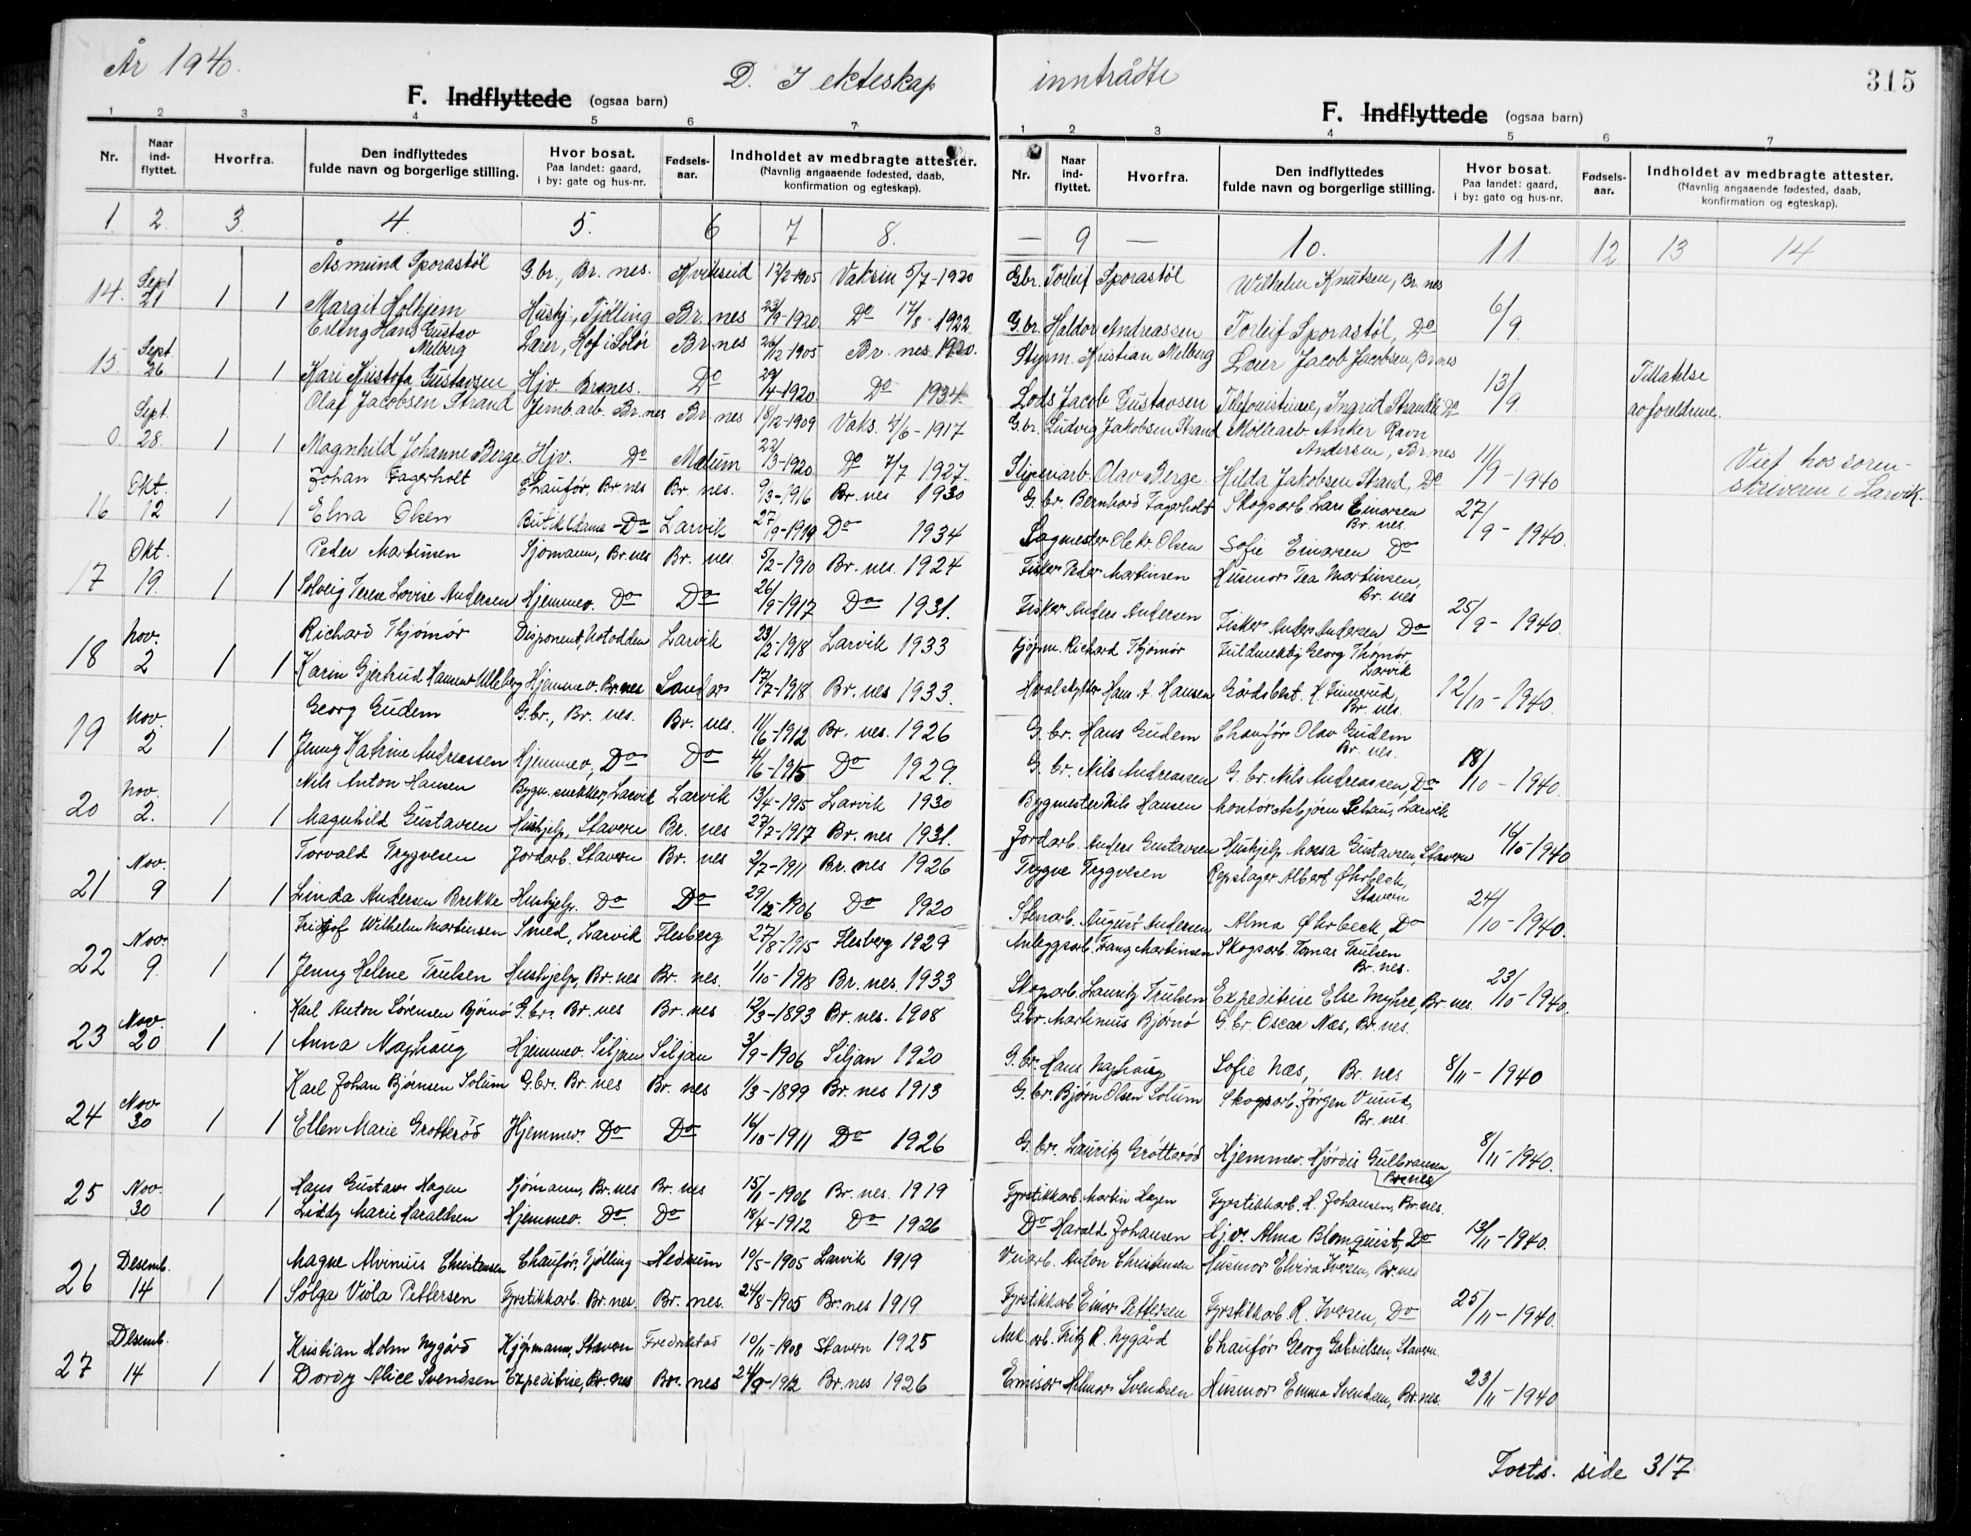 År 1940.
D. I ekteskap inntrådte
315
F. Indflyttede (ogsaa barn)
F. Indflyttede (ogsaa barn)
1 2 3 4 5 6 7
1 2 3 4 5 6 7
Nr. Naar ind-flyttet. Hvorfra. Den indflyttedes fulde navn og borgerlige stilling. Hvor bosat. Paa landet: gaard, i by: gate og hus-nr. Fødsels-aar. Indholdet av medbragte attester. (Navnlig angaaende fødested, daab, konfirmation og egteskap).
Nr. Naar ind-flyttet. Hvorfra. Den indflyttedes fulde navn og borgerlige stilling. Hvor bosat. Paa landet: gaard, i by: gate og hus-nr. Fødsels-aar. Indholdet av medbragte attester. (Navnlig angaaende fødested, daab, konfirmation og egteskap).
1. 2. 3. 4. 5. 6 7 8. — 9 — 10. 11 12 13 14
Åsmund Sporastøl G.br., Br.nes. Kviteseid 12/2-1905 Vaksin 5/7-1920 Gbr. Torleif Sporastøl Wilhelm Knutsen, Br.nes
14. Sept 21 1 1 Margit Holhjem Hushj., Tjølling Br.nes 23/9-1920 Do 17/8-1922 G.br. Haldor Andreassen Torleif Sporastøl, Do 6/9.
Erling Hans Gustav Melberg Lærer, Hof i Solør Br.nes 26/12-1905 Br.nes 1920. Styrm. Kristian Melberg Lærer Jacob Jacobsen, Br.nes
15 Sept. 26 1 1 Kari Kristofa Gustavsen Hjv. Br.nes. Do 29/4-1920 Do 1934. Lods Jacob Gustavsen Telefonistinne, Ingrid Strandli Do 13/9. Tillatelse av foreldrene.
Olaf Jacobsen Strand Jernb.arb. Br.nes Br.nes 18/12-1909 Vaks. 4/6-1917 G.br. Ludvig Jakobsen Strand Møllearb. Anker Ravn Andersen, Br.nes
0 Sept. 28 1 1 Magnhild Johanne Berge Hjv. Do Melum 22/3-1920 Do 7/7 1927. Slipsarb. Olav Berge Hilda Jakobsen Strand, Do 11/9-1940 Viet hos sorenskriveren i Larvik.
Johan Fagerholt Chaufør, Br.nes Br.nes. 9/3-1916 Br.nes 1930 G.br. Bernhard Fagerholt Skogsarb. Lars Einarsen Br.nes.
16 Okt. 12 1 1 Elna Olsen Butikkdame - Do Larvik 27/9-1919 Do 1934 Sagmester Ole Kr. Olsen Sofie Einarsen Do 27/9-1940.
Peder Martinsen Sjømann, Br.nes Br.nes 5/2-1910 Br.nes. 1924 Fisker Peder Martinsen Husmor Tea Martinsen, Br.nes
17 Okt. 19. 1 1 Solveig Terese Lovise Andersen Hjemmev. Do Do 26/9-1917 Do 1931. Fisker Anders Andersen Fisker Anders Andersen Do 25/9-1940.
Richard Thjømør Disponent, Notodden Larvik 23/2-1918 Larvik 1933 Kjøpm. Richard Thjømør Fuldmektig Georg Thømør Larvik
18 Nov. 2 1 1 Karin Gjertrud Hansen-Ulleberg Hjemmev. Br.nes Sandar 17/7-1918 Br.nes 1933. Hvalskytter Hans A. Hansen Gårdsbest. K. Finnerud, Br.nes. 12/10-1940.
Georg Gudem G.br., Br.nes. Br.nes. 11/6-1912 Br.nes. 1926 G.br. Hans Gudem Chaufør Olav Gudem Br.nes.
19 Nov. 2 1 1 Jenny Katrine Andreassen Hjemmev., Do Do 4/6-1915 Do 1929. G.br. Nils Andreassen G.br. Nils Andreassen, Do 18/10-1940.
Nils Anton Hansen Bygn.snekker, Larvik Larvik 13/4-1915 Larvik 1930 Bygmester Nils Hansen Kontorist Asbjørn Schau, Larvik
20 Nov. 2. 1 1 Magnhild Gustavsen Hushjelp, Stavern Br.nes 27/7-1917 Br.nes 1931. Jordarb. Anders Gustavsen Hushjelp Mossa Gustavsen, Stavern 16/10-1940
Torvald Trygvesen Jordarb. Stavern Br.nes 2/7-1911 Br.nes 1926 Trygve Trygvesen Repslager Albert Øhrbeck, Stavern
21 Nov. 9 1 1 Linda Andersen Brekke Hushjelp. Do Do 29/12-1906 Do 1920 Stenarb. August Andersen Alma Øhrbeck, Do 24/10-1940.
Fridtjof Wilhelm Martinsen Smed, Larvik Flesberg 27/8-1915 Flesberg 1929 Anleggsarb. Franz Martinsen Skogsarb. Tomas Trulsen Br.nes.
22 Nov. 9. 1 1 Jenny Helene Trulsen Hushjelp, Br.nes Br.nes. 1/10-1918 Br.nes. 1933 Skogsarb. Lauritz Trulsen Expeditrise Else Myhre, Br.nes. 23/10-1940.
Karl Anton Sørensen Bjørnø G.br. Br.nes Br.nes 12/3-1893 Br.nes. 1908 Gbr. Martinius Bjørnø G.br. Oscar Næs, Br.nes.
23 Nov. 20 1 1 Anna Naphaug Hjemmev. Siljan Siljan 3/9-1906 Siljan 1920 G.br. Hans Naphaug Sofie Næs, Br.nes 8/11-1940
Karl Johan Bjørnsen Solum G.br. Br.nes Br.nes 1/3-1899 Br.nes 1913 G.br. Bjørn Olsen Solum Skogsarb. Jørgen Vurud, Br.nes.
24 Nov. 30 1 1 Ellen Marie Grøtterød Hjemmev. Do Do 16/10-1911 Do 1926 G.br. Lauritz Grøtterød Hjemmev. Hjørdis Gulbransen, Br.nes 8/11-1940.
25 Nov. 30 1 1 Hans Gustav Hagen Sjømann, Br.nes Br.nes 15/1-1906 Br.nes. 1919 Fyrstikkarb. Martin Hagen Fyrstikkarb. K. Johansen, Br.nes.
Liddy Marie Haraldsen Hjemmev. Do Do 18/4-1912 Do 1926 Do Harald Johansen Hj.v. Alma Blomquist, Do 13/11-1940.
26 Desemb. 14 1 1 Magne Alvinius Christensen Chaufør, Tjølling Hedrum 10/5-1905 Larvik 1919 Anton Christensen Husmor Elvira Iversen, Br.nes
Solga Viola Pettersen Fyrstikkarb. Br.nes. Br.nes. 24/8-1905 Br.nes 1919 Fyrstikkarb. Einar Pettersen Fyrstikkarb. R. Iversen, Do 25/11-1940.
27 Desemb. 14 1 1 Kristian Holm Nygård Kjøpmann, Stavern Fredrikstad 10/11-1908 Stavern 1925 Mek.arb. Fritz R. Nygård Chaufør Georg Gabrielsen, Stavern.
Dordy Alice Svendsen Expeditrise, Br.nes Br.nes 24/9-1912 Br.nes 1926 Emisær Hilmar Svendsen Husmor Emma Svendsen, Br.nes. 23/11-1940
Forts. side 317